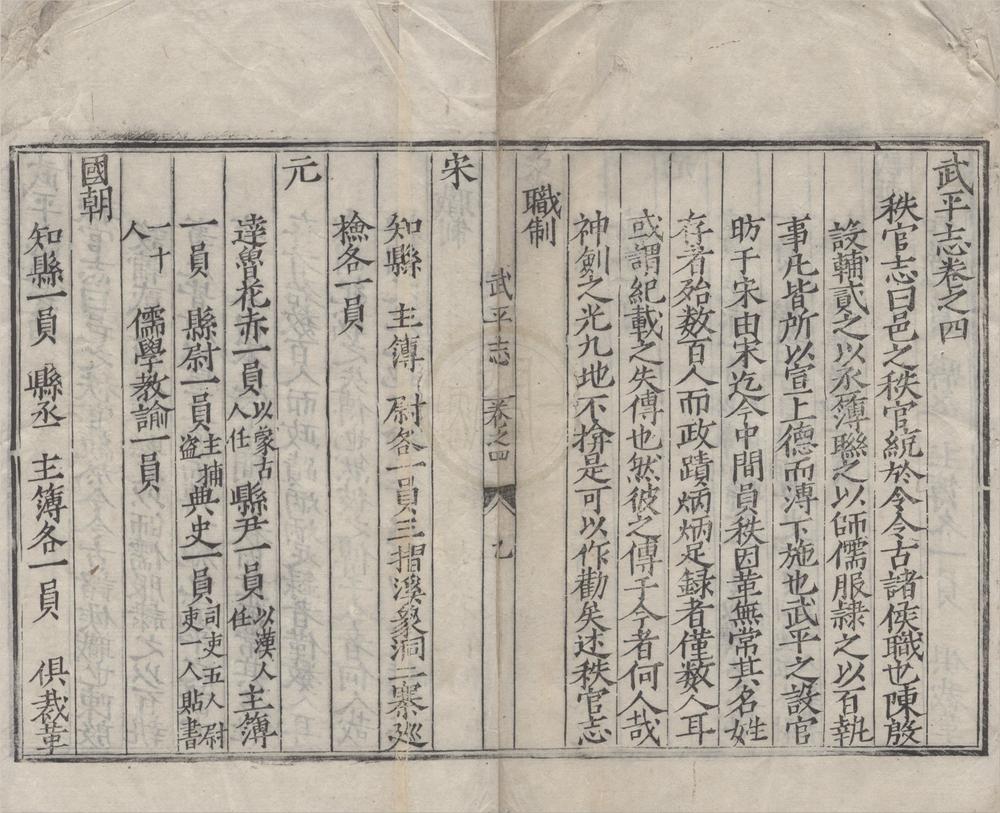 武平志卷之四
秩官志曰邑之秩官統於令令古諸侯職也陳殷
設輔貳之以丞簿聯之以師儒服隷之以百執
事凡皆所以宣上德而溥下施也武平之設官
昉于宋由宋迄今中間員秩因革無常其名姓
存者殆数百人而政蹟炳炳足録者僅数人耳
或謂紀載之失傳也然彼之傳于今者何人哉
神劍之光九地不揜是可以作勸矣述秩官志
職制
宋
知縣 主簿 尉各一員三摺溪象洞二寨廵
檢各一員
元
達魯花赤一員以蒙古人任縣尹一員以漢人任主簿
一員 縣尉一員主捕盗典史一員司吏五人尉吏一人貼書
一十人 儒學教諭一員
國朝
知縣一員 縣丞 主簿各一員 俱裁革
武平志 卷之四 九